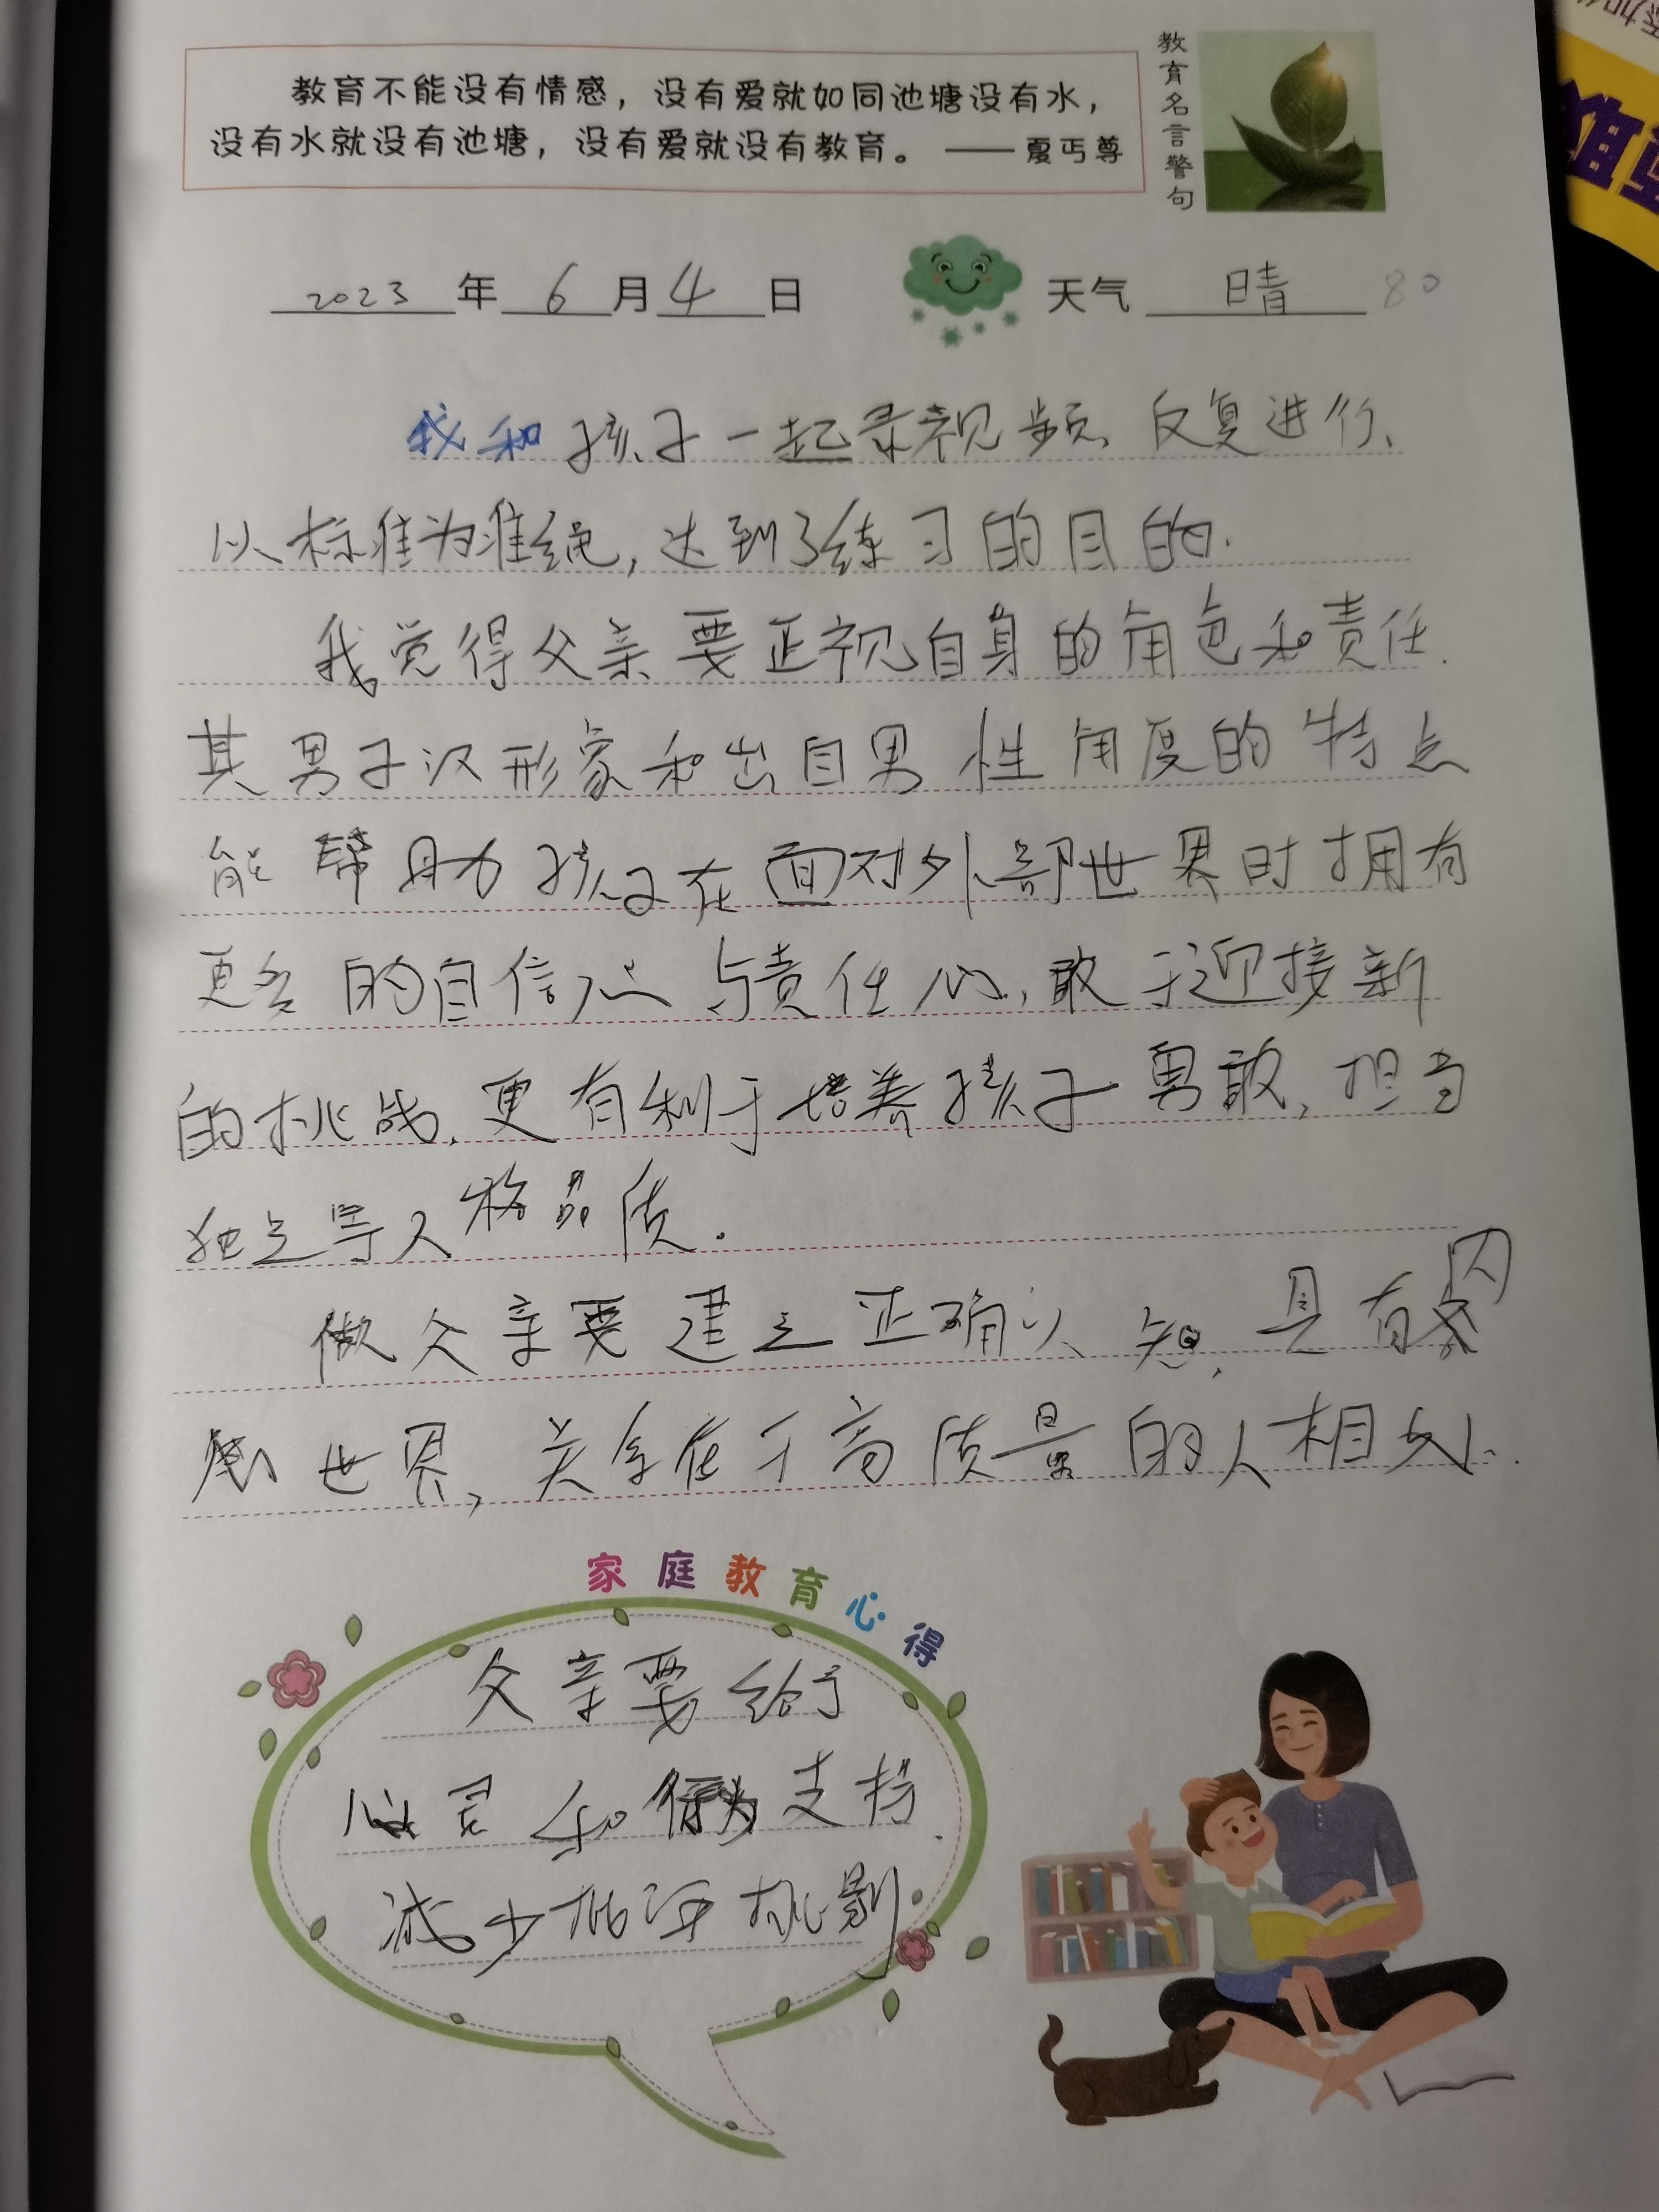 教育不能没有情感，没有爱就如同池塘没有水，
没有水就没有池塘，没有爱就没有教育。 —— 夏丏尊
教育名言警句
2023 年 6 月 4 日 天气 晴 80
我和孩子一起录视频、反复进行、
以标准为准绳，达到了练习的目的.
我觉得父亲要正视自身的角色和责任.
其男子汉形象和出自男性角度的特点
能帮助孩子在面对外部世界时拥有
更多的自信心与责任心，敢于迎接新
的挑战，更有利于培养孩子勇敢，担当
独立等人格品质.
做父亲要建立正确认知，具有
世界，关系在于高质量的人相处.
家庭教育心得
父亲要给予
心灵和 支持.
减少批评挑剔.